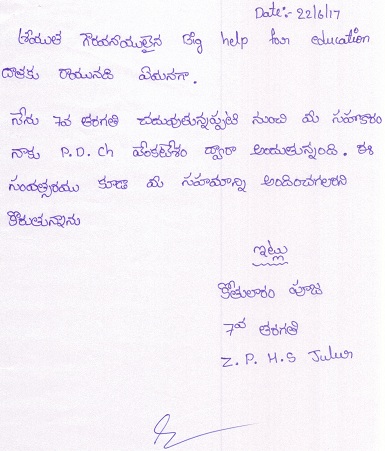 Date:- 22/6/17
శ్రీయుత గౌరవనీయులైన Big help for education
దాతకు రాయునది ఏమనగా.
నేను 7వ తరగతి చదువుతున్నప్పటి నుంచి మీ సహకారం
నాకు P.D. Ch వెంకటేశం ద్వారా అందుతున్నది. ఈ
సంవత్సరము కూడా మీ సహాయాన్ని అందించగలరని
కోరుతున్నాను
ఇట్లు
పూజ
7వ తరగతి
Z. P. H. S Julur